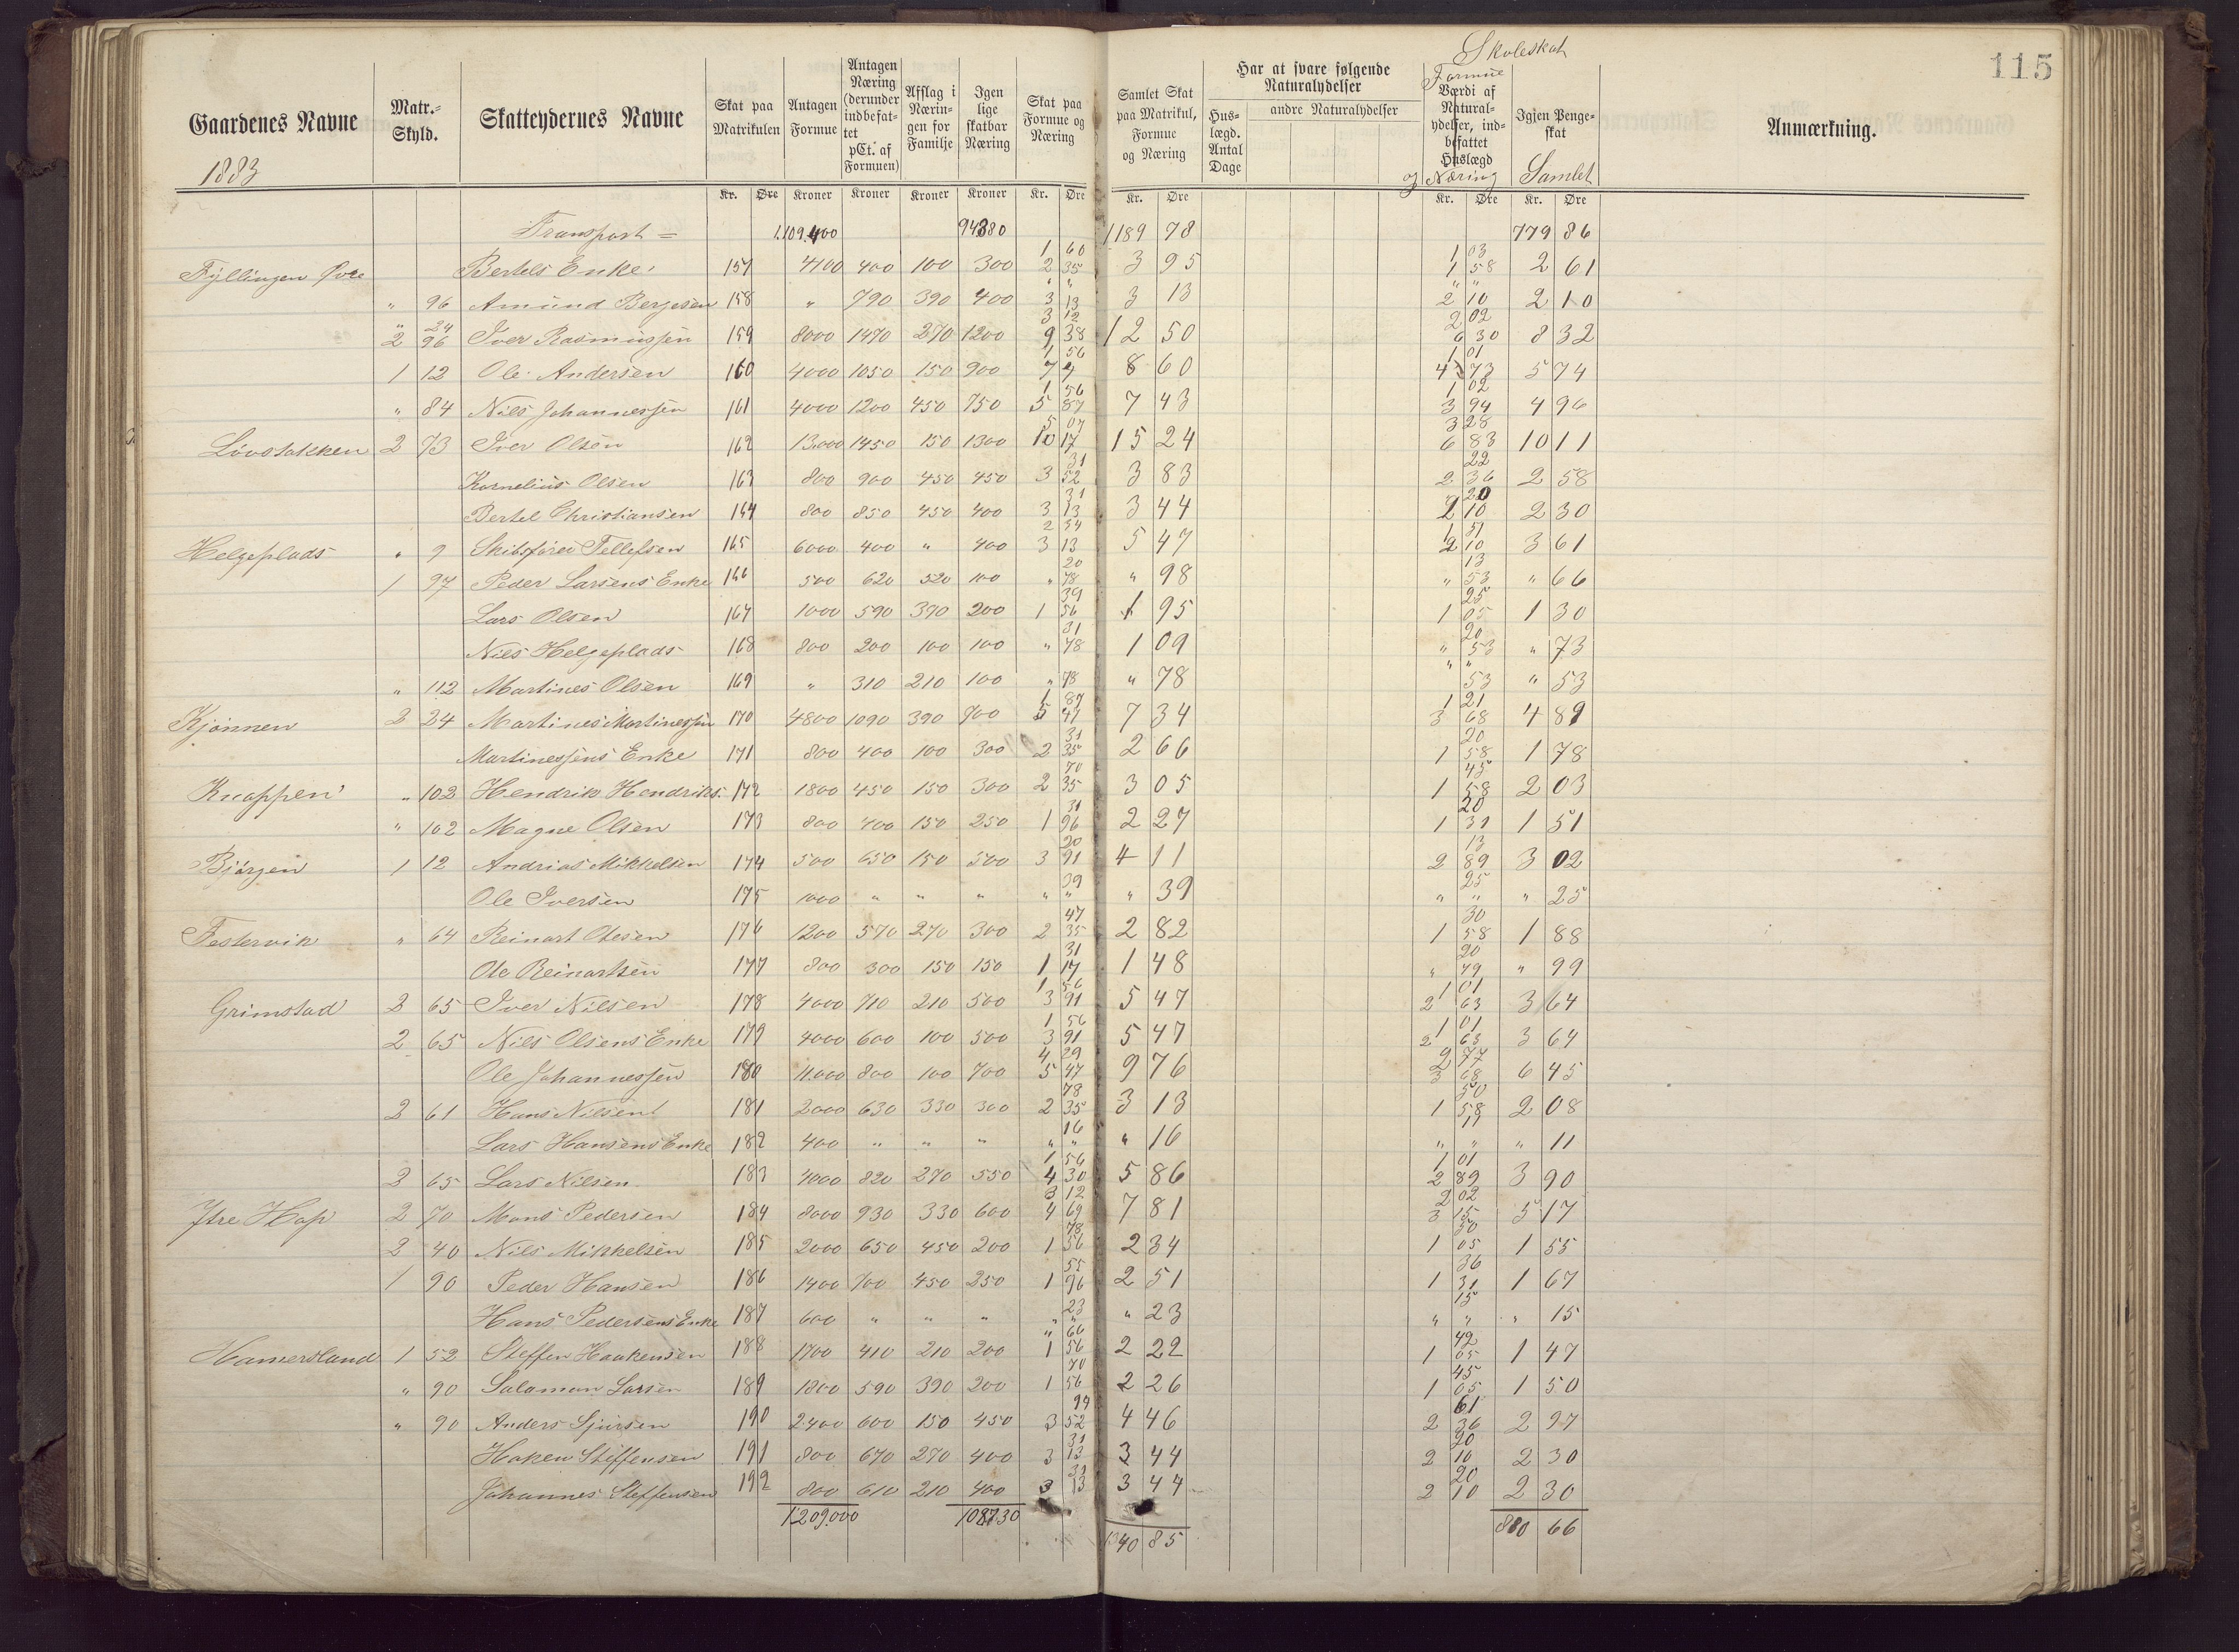 115
Skoleskat
Gaardenes Navne | Matr.=Skyld. | Skatteydernes Navne | Skat paa Matrikulen | Antagen Formue | Antagen Næring (derunder indbefattet pCt. af Formuen) | Afslag i Næringen for Familje | Igen lige skatbar Næring | Skat paa Formue og Næring | Samlet Skat paa Matrikul, Formue og Næring | Har at svare følgende Naturalydelser | Huslægd. Antal Dage | andre Naturalydelser | Formue Værdi af Naturalydelser, indbefattet Huslægd og Næring | Igjen Pengeskat Samlet | Anmærkning.
1883
Kr. Øre Kroner Kroner Kroner Kroner Kr. Øre Kr. Øre Kr. Øre Kr. Øre
Transport = 1.109.400 94380 1189 78 779 86
Fyllingen Øvre Bertels Enke 157 4100 400 100 300 1 60 2 35 3 95 1 03 1 58 2 61
" 96 Amund Bergesen 158 " 790 390 400 " " 3 13 3 13 " " 2 10 2 10
" 24 2 96 Iver Rasmussen 159 8000 1470 270 1200 3 12 9 38 12 50 2 02 6 30 8 32
1 12 Ole Andersen 160 4000 1050 150 900 1 56 7 4 8 60 1 01 4 73 5 74
" 84 Nils Johannessen 161 4000 1200 450 750 1 56 5 87 7 43 1 02 3 94 4 96
Løvstakken 2 73 Iver Olsen 162 13.000 1450 150 1300 5 07 10 17 15 24 3 28 6 83 10 11
Kornelius Olsen 163 800 900 450 450 31 3 52 3 83 22 2 36 2 58
Bertel Christiansen 164 800 850 450 400 31 3 13 3 44 20 2 10 2 30
Helgeplads " 9 Skibsfører Tellefsen 165 6000 400 " 400 2 34 3 13 5 47 1 51 2 10 3 61
1 97 Peder Larsens Enke 166 500 620 520 100 20 " 78 " 98 13 " 53 " 66
Lars Olsen 167 1000 590 390 200 39 1 56 1 95 25 1 05 1 30
Nils Helgeplads 168 800 200 100 100 31 " 78 1 09 20 " 53 " 73
" 112 Martines Olsen 169 " 310 210 100 " 78 " 78 " " 53 " 53
Kjønnen 2 24 Martines Martinessen 170 4800 1090 390 700 1 87 5 47 7 34 1 21 3 68 4 89
Martinessens Enke 171 800 400 100 300 31 2 35 2 66 20 1 58 1 78
Knappen " 102 Hendrik Hendriks. 172 1800 450 150 300 70 2 35 3 05 45 1 58 2 03
" 102 Magne Olsen 173 800 400 150 250 31 1 96 2 27 20 1 31 1 51
Bjørgen 1 12 Andrias Mikkelsen 174 500 650 150 500 20 3 91 4 11 13 2 89 3 02
Ole Iversen 175 1000 " " " 39 " " " 39 25 " " " 25
Festervik " 64 Reinart Olesen 176 1200 570 270 300 47 2 35 2 82 30 1 58 1 88
Ole Reinartsen 177 800 300 150 150 31 1 17 1 48 20 " 79 " 99
Grimstad 3 65 Iver Nilsen 178 4000 710 210 500 1 56 3 91 5 47 1 01 2 63 3 64
2 65 Nils Olsens Enke 179 4000 600 100 500 1 56 3 91 5 47 1 01 2 63 3 64
Ole Johannessen 180 11.000 800 100 700 4 29 5 47 9 76 2 77 3 68 6 45
2 61 Hans Nilsen 181 2000 630 330 300 78 2 35 3 13 50 1 58 2 08
Lars Hansens Enke 182 400 " " " 16 " " " 16 11 " " " 11
3 65 Lars Nilsen 183 4000 820 270 550 1 56 4 30 5 86 1 01 2 89 3 90
Ytre Hop 2 70 Mons Pedersen 184 8000 930 330 600 3 12 4 69 7 81 2 02 3 15 5 17
2 40 Nils Mikkelsen 185 2000 650 450 200 78 1 56 2 34 50 1 05 1 55
1 90 Peder Hansen 186 1400 700 450 250 55 1 96 2 51 36 1 31 1 67
Hans Pedersens Enke 187 600 " " " 23 " " " 23 15 " " " 15
Hamersland 1 52 Steffen Haakensen 188 1700 410 210 200 " 66 1 56 2 22 42 1 05 1 47
" 90 Salamon Larsen 189 1800 590 390 200 70 1 56 2 26 45 1 05 1 50
" 90 Anders Sjursen 190 2400 600 150 450 94 3 52 4 46 61 2 36 2 97
Haken Stiffensen 191 800 670 270 400 31 3 13 3 44 20 2 10 2 30
Johannes Steffensen 192 800 610 210 400 31 3 13 3 44 20 2 10 2 30
1209.000 108730 1340 85 880 66